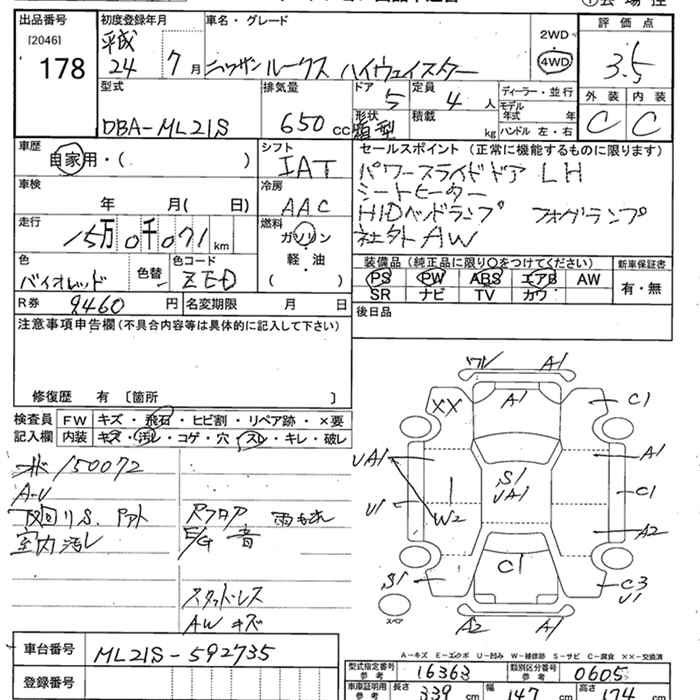 出品番号
[2046]
178
初度登録年月
平成
24 7月
車名・グレード
ニッサン ルークス ハイウェイスター
2WD
4WD
評価点
3.5
外装 内装
C C
型式
DBA-ML21S
排気量
650cc
ドア
5
定員
4人
形状
箱型
積載
kg
ディーラー・並行
モデル年式 年
ハンドル 左・右
車歴
自家用・( )
シフト
IAT
冷房
AAC
車検
年 月( 日)
走行
15万0千071km
燃料
ガソリン
軽・油
( )
色
バイオレッド
色替
色コード
ZED
R券 9460円
名変期限 月 日
セールスポイント(正常に機能するものに限ります)
パワースライドドア LH
シートヒーター
HIDヘッドランプ フォグランプ
社外AW
装備品(純正品に限り○をつけてください)
PS PW ABS エアB AW
SR ナビ TV カワ
新車保証書
有・無
後日品
注意事項申告欄(不具合内容等は具体的に記入して下さい)
修復歴 有 〔箇所 〕
検査員
記入欄
FW キズ・飛石・ヒビ割・リペア跡・×要
内装 キズ・汚レ・コゲ・穴・スレ・キレ・破レ
150072
A-U
下回りS.
室内汚レ
Rフロア 雨もれ
E/G 音
スタッドレス
AWキズ
ワレ A1
XX A1 C1
UA1 A1
S1
UA1
U1 W2 C1
A2
C1
S1 C3
U1
スペア
A2 A1
A-キズ E-エクボ U-凹み W-補修跡 S-サビ C-腐食 XX-交換済
車台番号
ML21S-592735
登録番号
型式指定番号
参考
16363
類別区分番号
参考
0605
車庫証明用
参考
長さ 339cm 幅 147cm 高さ 174cm